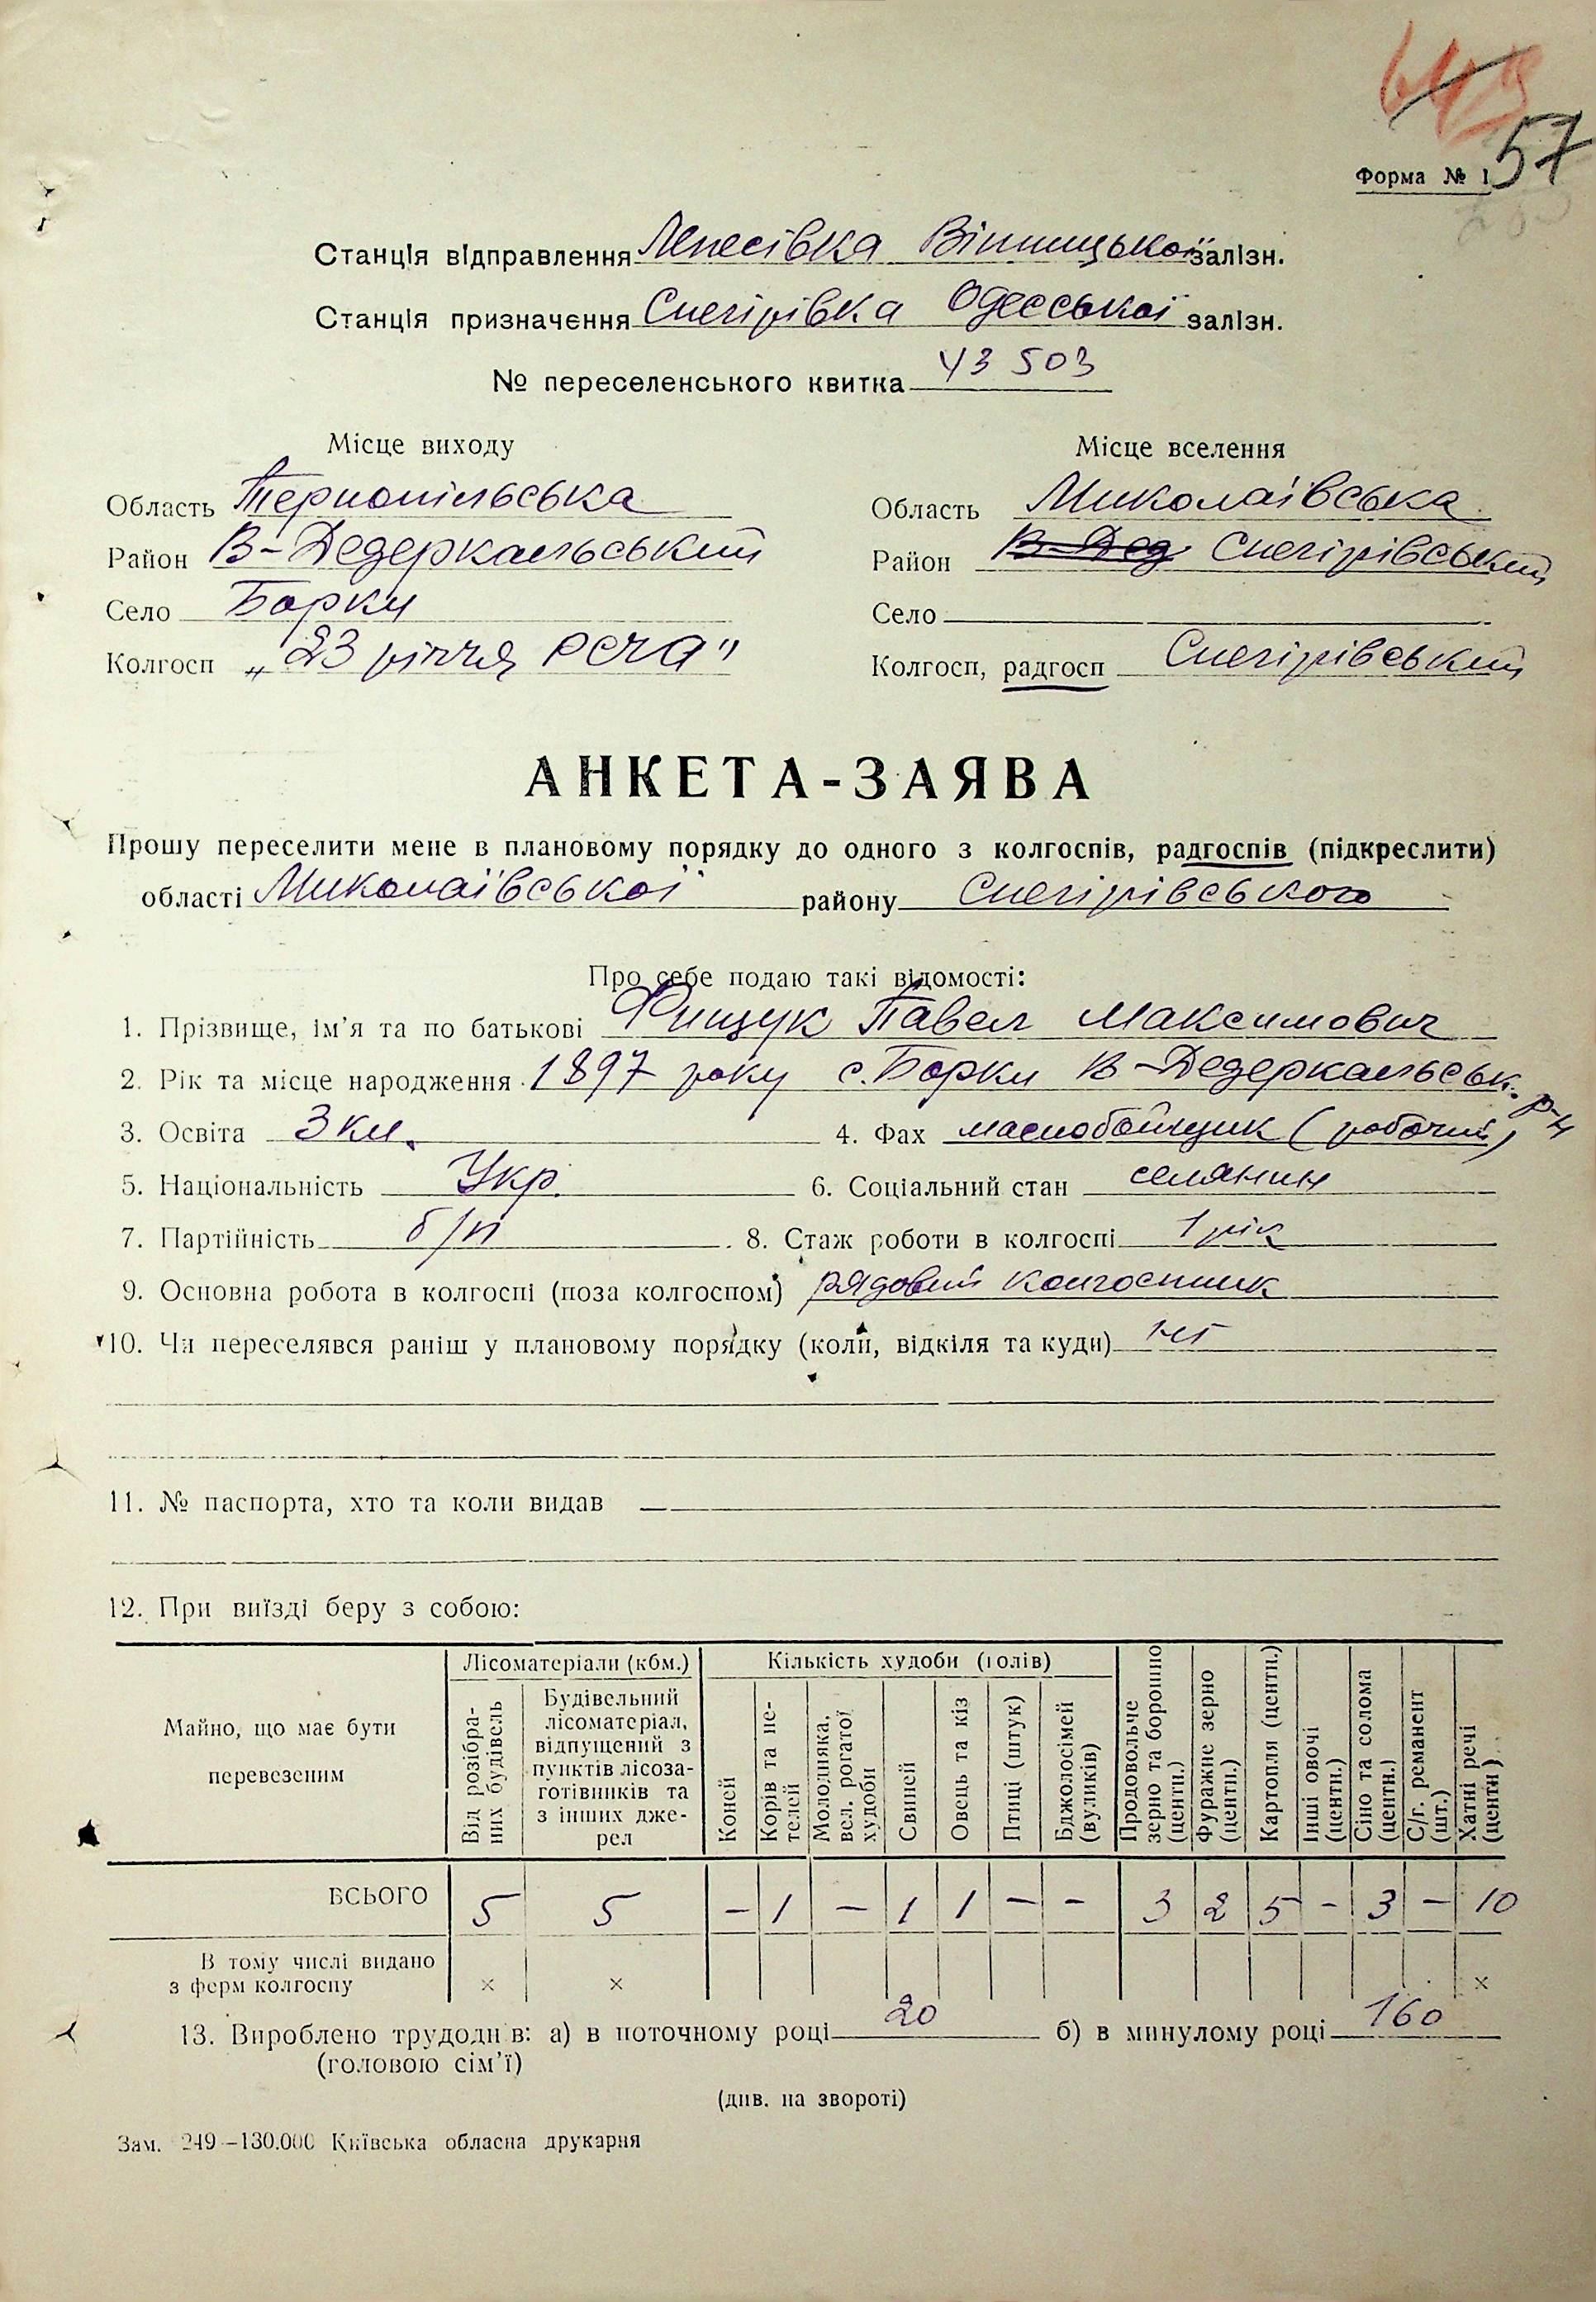 649
57
Форма № 1
Станція відправлення Лепесівка Вінницької залізн.
Станція призначення Снегірівка Одесської залізн.
№ переселенського квитка 43 503
Місце виходу
Область Тернопільська
Район В-Дедеркальський
Село Борки
Колгосп „23 річчя РСЧА"
Місце вселення
Область Миколаївська
Район В-Дед Снегірівський
Село
Колгосп, радгосп Снегірівський
АНКЕТА-ЗАЯВА
Прошу переселити мене в плановому порядку до одного з колгоспів, радгоспів (підкреслити)
області Миколаївської району Снегірівського
Про себе подаю такі відомості:
1. Прізвище, ім'я та по батькові Фищук Павел Максимович
2. Рік та місце народження 1897 року с. Борки В-Дедеркальськ. р-н
3. Освіта 3 кл. 4. Фах маслобойщик (робочий)
5. Національність Укр. 6. Соціальний стан селянин
7. Партійність б/п 8. Стаж роботи в колгоспі 1 рік
9. Основна робота в колгоспі (поза колгоспом) рядовий колгоспник
10. Чи переселявся раніш у плановому порядку (коли, відкіля та куди) ні
11. № паспорта, хто та коли видав —
12. При виїзді беру з собою:
Майно, що має бути перевезеним
Лісоматеріали (кбм.)
Від розібраних будівель
Будівельний лісоматеріал, відпущений з пунктів лісозаготівників та з інших джерел
Кількість худоби (голів)
Коней
Корів та нетелей
Молодняка, вел. рогатої худоби
Свиней
Овець та кіз
Птиці (штук)
Бджолосімей (вуликів)
Продовольче зерно та борошно (центн.)
Фуражне зерно (центн.)
Картопля (центн.)
Інші овочі (центн.)
Сіно та солома (центн.)
С/г. реманент (шт.)
Хатні речі (центн)
ВСЬОГО 5 5 — 1 — 1 1 — — 3 2 5 — 3 — 10
В тому числі видано з ферм колгоспу × × ×
13. Вироблено трудоднів: а) в поточному році 20 б) в минулому році 160
(головою сім'ї)
(див. на звороті)
Зам. 249—130.000 Київська обласна друкарня